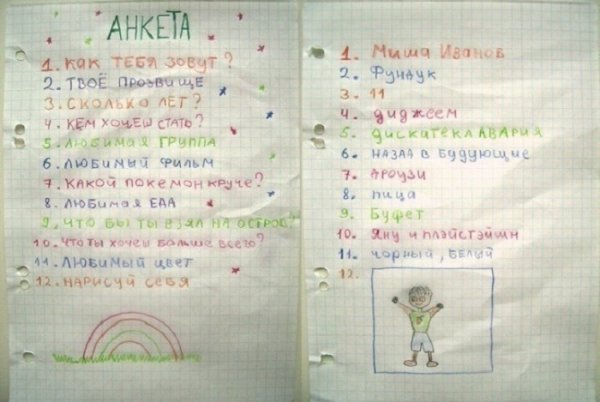 АНКЕТА
1. КАК ТЕБЯ ЗОВУТ?
2. ТВОЁ ПРОЗВИЩЕ
3. СКОЛЬКО ЛЕТ?
4. КЕМ ХОЧЕШ СТАТЬ?
5 ЛЮБИМАЯ ГРУППА
6. ЛЮБИМЫЙ ФИЛЬМ
7. КАКОЙ ПОКЕМОН КРУЧЕ?
8. ЛЮБИМАЯ ЕДА
9. ЧТО БЫ ТЫ ВЗЯЛ НА ОСТРОВ?
10. ЧТО ТЫ ХОЧЕШ БОЛЬШЕ ВСЕГО?
11. ЛЮБИМЫЙ ЦВЕТ
12. НАРИСУЙ СЕБЯ
1. Миша Иванов
2. Фундук
3. 11
4. диджеем
5. дискатека АВАРИЯ
6. НАЗАД В БУДУЮЩИЕ
7. ДРОУЗИ
8. пица
9. Буфет
10. Яну и плэйстэйшн
11. чорный, БЕЛЫЙ
12.